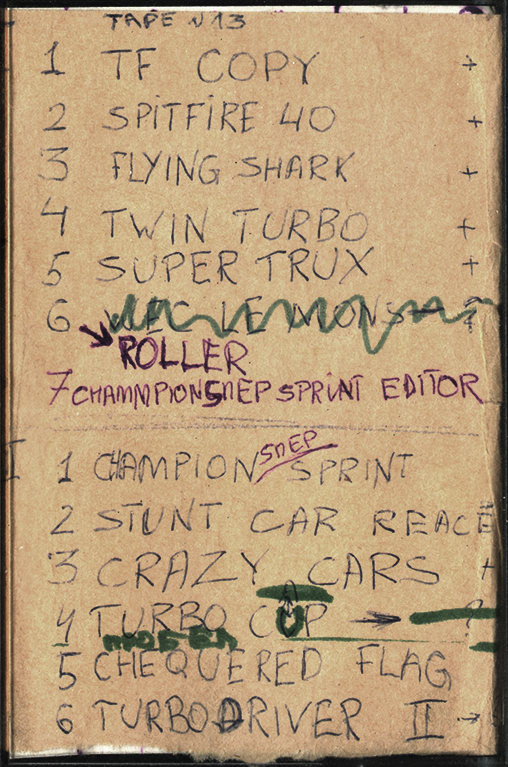 TAPE N13
1 TF COPY +
2 SPITFIRE 40 +
3 FLYING SHARK +
4 TWIN TURBO +
5 SUPER TRUX +
6 WEC LE MONS ?
ROLLER
7 CHAMNPIONSHEP SPRINT EDITOR
I 1 CHAMPIONSHEP SPRINT
2 STUNT CAR REACE
3 CRAZY CARS +
4 TURBO CUP → ?
5 CHEQUERED FLAG
6 TURBO DRIVER II →